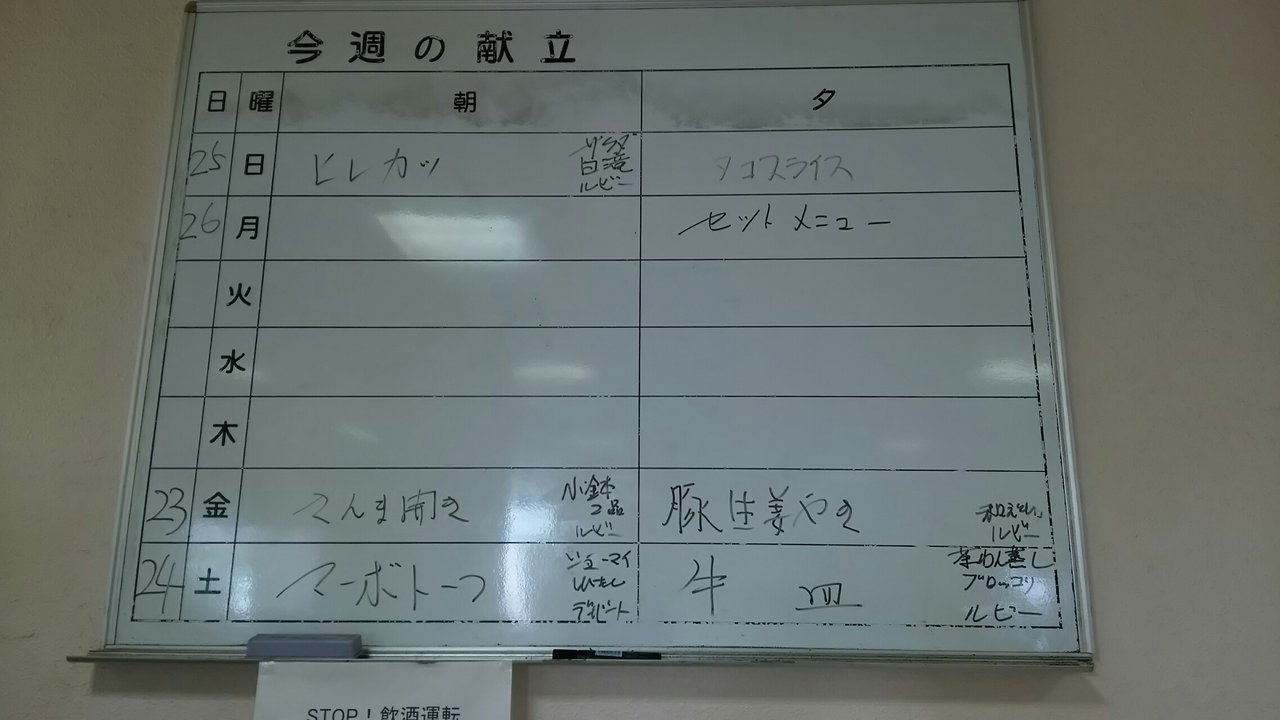 今週の献立
日 曜 朝 夕
25 日 ヒレカツ サラダ 白滝 ルビー タコスライス
26 月 セットメニュー
火
水
木
23 金 さんま開き 小鉢 2品 ルビー 豚生姜やき ルビー
24 土 マーボトーフ シューマイ デザート 牛皿 茶わん蒸し ブロッコリ ルビー
STOP!飲酒運転